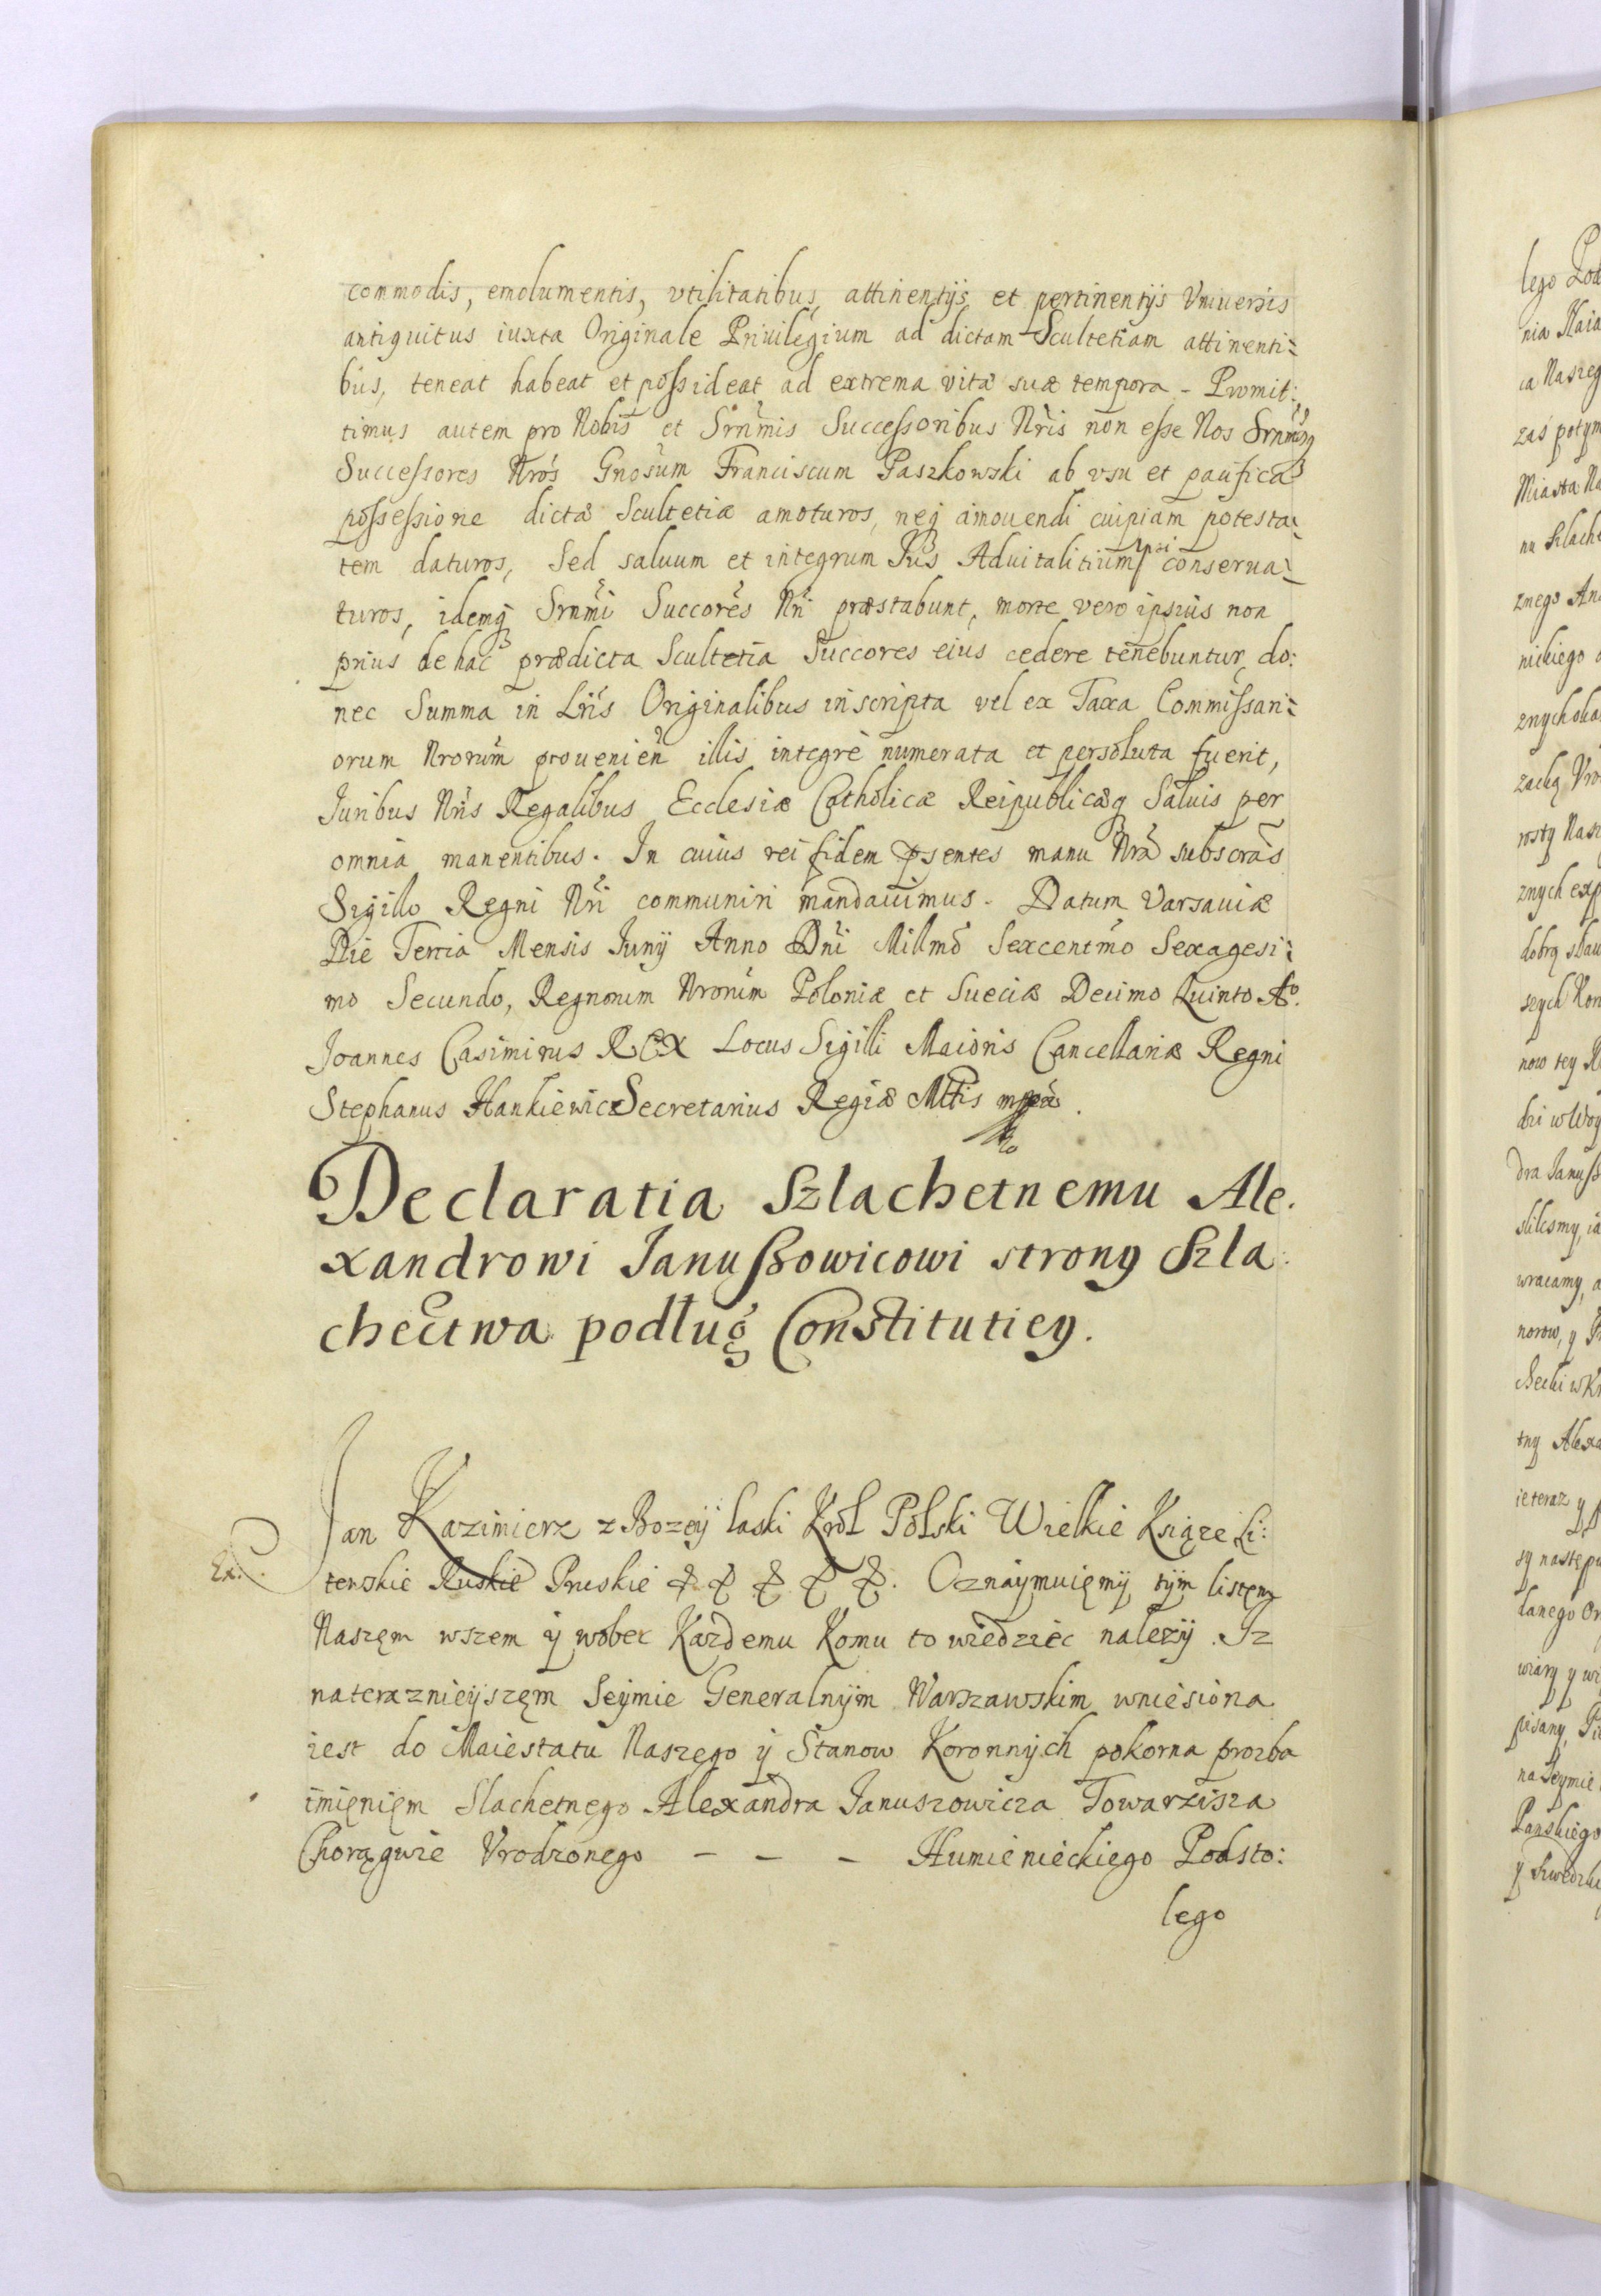 commodis, emolumentis, vtilitatibus, attinentijs, et pertinentijs Vniuersis
antiquitus iuxta Originale Priuilegium ad dictam Scultetiam attinenti:
bus, teneat habeat et possideat ad extrema vitæ suæ tempora - Promit:
timus autem pro Nobis et Srnmis Successoribus Nris non esse Nos Srnmosq
Successores Nros Gnosum Franciscum Paszkowski ab vsu et paufica
possessione dictæ Scultetiæ amoturos, neq amouendi cuipiam potesta:
tem daturos, Sed saluum et integrum Jus Aduitalitium ipsi conserua:
turos, idemq Srnmi Succores Nri præstabunt, morte vero ipsius non
prius de hac prædicta Scultetia Succores eius cedere tenebuntur, do:
nec Summa in Lris Originalibus inscripta vel ex Taxa Commissari:
orum Nrorum prouenien illis integrè numerata et persoluta fuerit,
Juribus Nris Regalibus Ecclesiæ Catholicæ Reipublicæq Saluis per
omnia manentibus. In cuius rei fidem psentes manu Nra subscras
Sigillo Regni Nri communiri mandauimus. Datum Varsauiæ
Die Tertia Mensis Junij Anno Dni Millmo Sexcentmo Sexagesi:
mo Secundo, Regnorum Nrorum Poloniæ et Sueciæ Decimo Quinto Ao.
Joannes Casimirus REX Locus Sigilli Maioris Cancellariæ Regni
Stephanus Hankiewicz Secretarius Regiæ Mttis mppa.
Declaratia Szlachetnemu Ale.
xandrowi Janussowicowi strony Szla:
chectwa podług Constitutiey.
Jan Kazimierz z Bozey łaski Krol Polski Wielkie Książe Li:
Ex.
tewskie Ruskie Pruskie & & & & &. Oznaymuięmy tym listęm
Naszęm wszem y wobec Kazdemu Komu to wiedziec nalezy. Iz
nateraznieyszęm Seymie Generalnym Warszawskim wniesiona
iest do Maiestatu Naszego y Stanow Koronnych pokorna prozba
imięnięm Slachetnego Alexandra Januszowicza Towarzisza
Chorągwie Vrodzonego - - - Humienieckiego Podsto:
lego